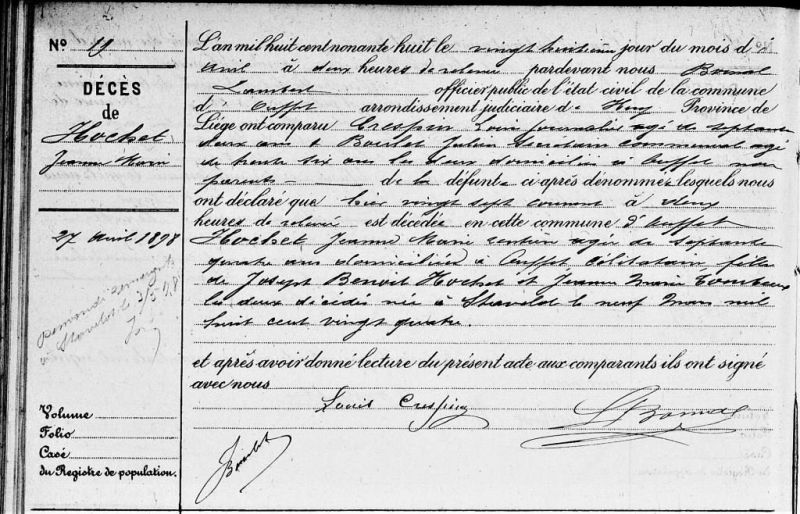 N° 11
DÉCÈS
de
Hochet
Jeanne Marie
27 Avril 1898
Volume
Folio
Casé
du Registre de population.
L'an mil huit cent nonante huit le vingt huitième jour du mois d'
avril à deux heures de relevée pardevant nous Bonal
Lambert officier public de l'état civil de la commune
d'Ouffet arrondissement judiciaire de Huy Province de
Liège ont comparu Louis journalier agé de septante
deux ans & Julien communal agé
de trente six ans les deux domiciliés à Ouffet non
parents de la défunte ci après dénommée lesquels nous
ont déclaré que hier vingt sept courant à deux
heures de relevée est décedée en cette commune d'Ouffet
Hochet Jeanne Marie rentière agée de septante
quatre ans domiciliée à Ouffet célibataire fille
de Joseph Benoit Hochet et Jeanne Marie
les deux décédés née à Stavelot le neuf Mars mil
huit cent vingt quatre.
et après avoir donné lecture du présent acte aux comparants ils ont signé
avec nous
Louis